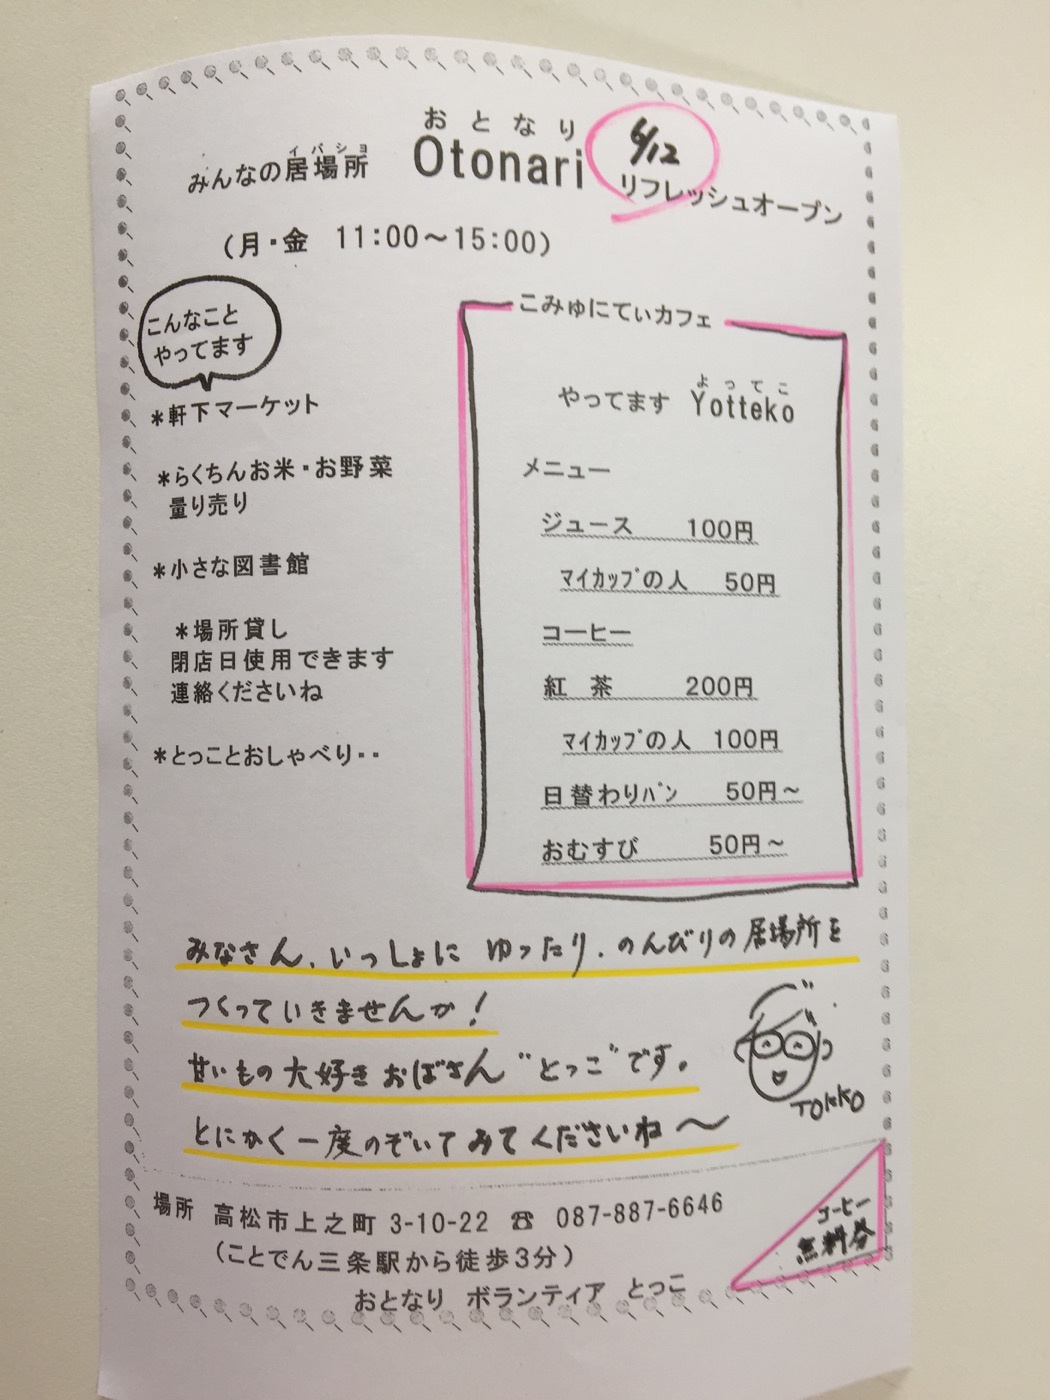 おとなり
イバショ
みんなの居場所 Otonari 6/12
リフレッシュオープン
(月・金 11:00～15:00)
こんなこと
やってます
*軒下マーケット
*らくちんお米・お野菜
量り売り
*小さな図書館
*場所貸し
閉店日使用できます
連絡くださいね
*とっことおしゃべり・・
こみゅにてぃカフェ
よってこ
やってます Yotteko
メニュー
ジュース 100円
ﾏｲｶｯﾌﾟの人 50円
コーヒー
紅 茶 200円
ﾏｲｶｯﾌﾟの人 100円
日替わりﾊﾟﾝ 50円～
おむすび 50円～
みなさん、いっしょに ゆったり、のんびりの居場所を
つくっていきませんか！
甘いもの大好きおばさん"とっこ"です。
とにかく一度のぞいてみてくださいね～
TOKKO
場所 高松市上之町 3-10-22 ☎ 087-887-6646
(ことでん三条駅から徒歩3分)
おとなり ボランティア とっこ
コーヒー
無料券